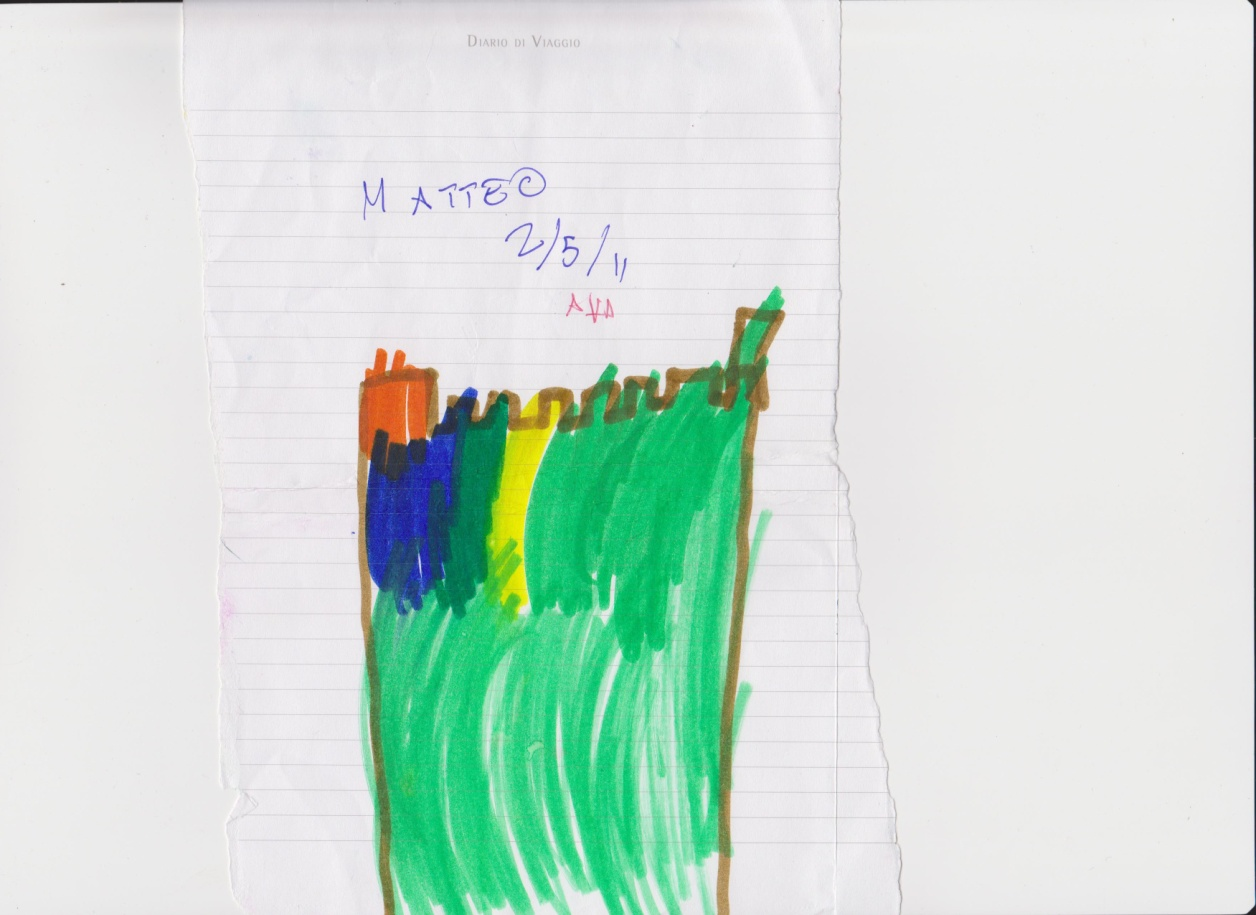 Diario di Viaggio
MATTEO
2/5/11
AVA